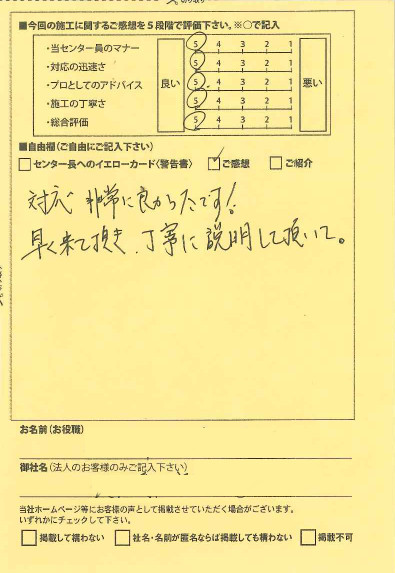 ■今回の施工に関するご感想を5段階で評価下さい。※○で記入
・当センター員のマナー 良い 5 4 3 2 1 悪い
・対応の迅速さ 5 4 3 2 1
・プロとしてのアドバイス 5 4 3 2 1
・施工の丁寧さ 5 4 3 2 1
・総合評価 5 4 3 2 1
■自由欄(ご自由にご記入下さい)
センター長へのイエローカード(警告書) ご感想 ご紹介
対応 非常に良かったです!
早く来て頂き、丁寧に説明して頂いて。
お名前(お役職)
御社名(法人のお客様のみご記入下さい)
当社ホームページ等にお客様の声として掲載させていただく場合がございます。
いずれかにチェックして下さい。
掲載して構わない 社名・名前が匿名ならば掲載しても構わない 掲載不可